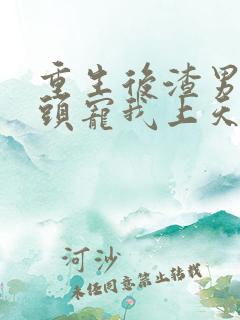 重生後渣男
頭寵我上天
河沙
未经同意禁止转载